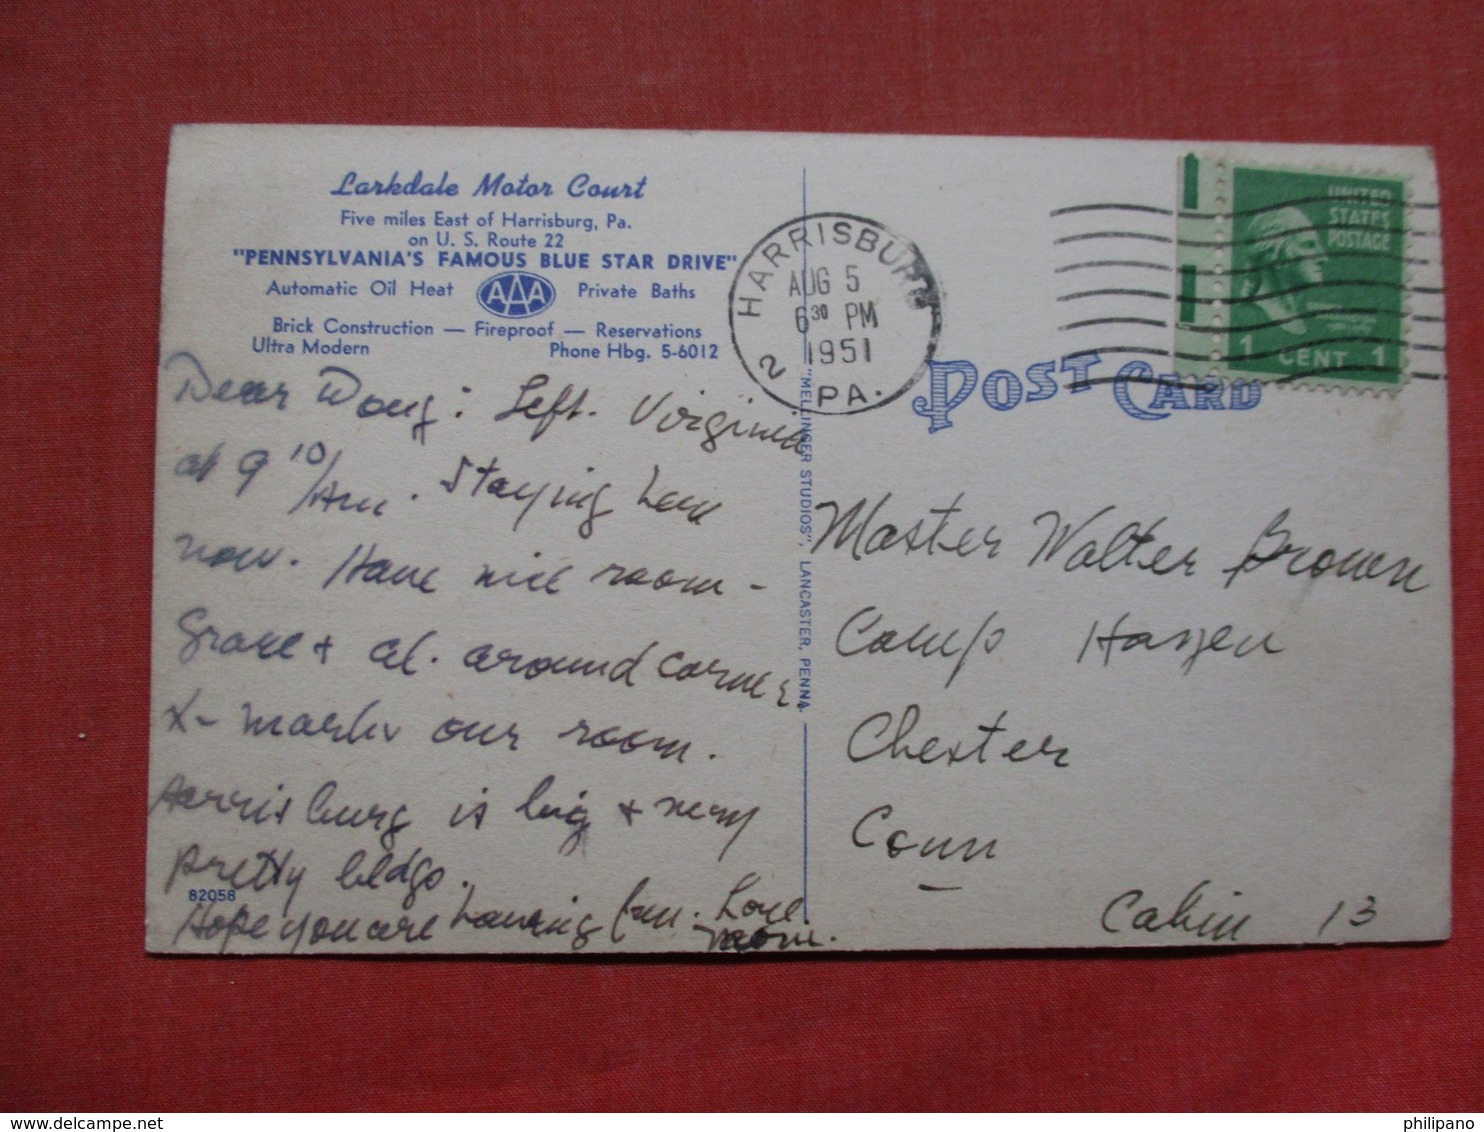 Larkdale Motor Court
Five miles East of Harrisburg, Pa.
on U. S. Route 22
"PENNSYLVANIA'S FAMOUS BLUE STAR DRIVE"
Automatic Oil Heat AAA Private Baths
Brick Construction — Fireproof — Reservations
Ultra Modern Phone Hbg. 5-6012
Dear Doug: Left. Virginia
at 9 10/Am. Staying here
now. Have nice room -
Grace + Al. around corner
X- marks our room.
Harrisburg is big + very
pretty bldgs.
82058
Hope you are having fun. Love.
Mom.
"MELLINGER STUDIOS", LANCASTER, PENNA.
HARRISBURG
AUG 5
6 30 PM
1951
2 PA.
UNITED
STATES
POSTAGE
1 CENT 1
POST CARD
Master Walter Brown
Camp Hazen
Chester
Conn
Cabin 13
philipano
www.delcampe.net